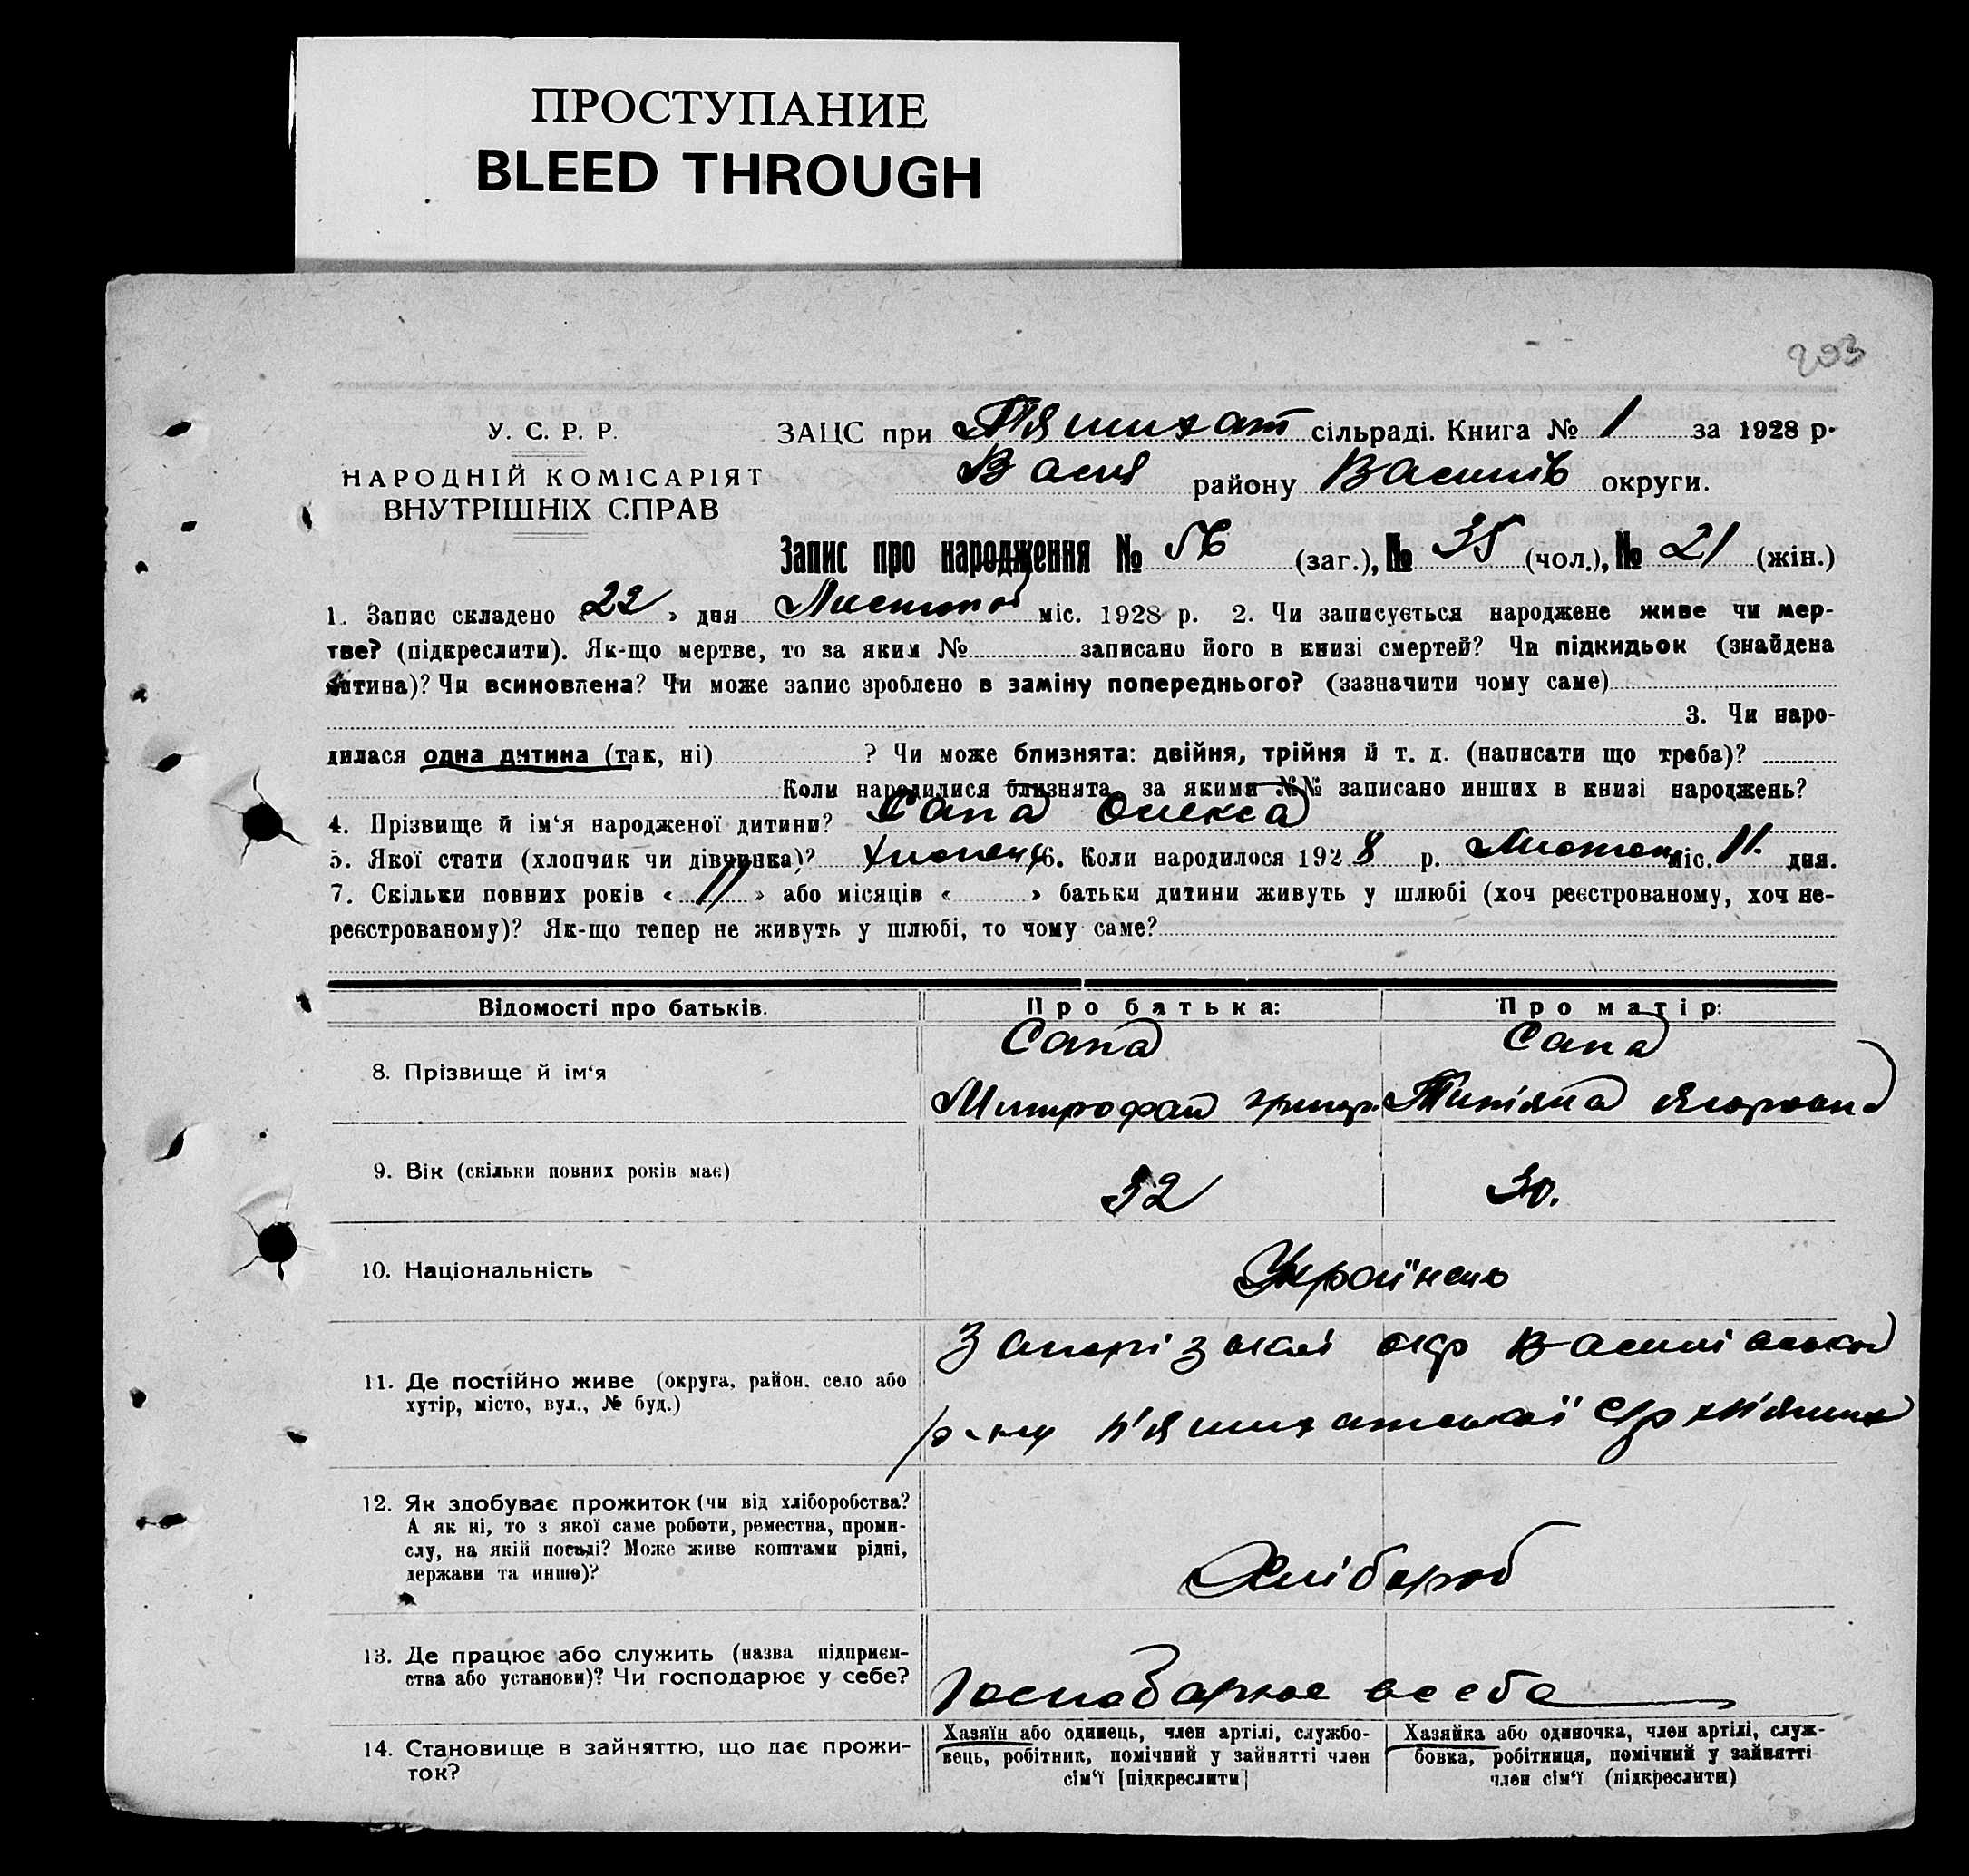 ПРОСТУПАНИЕ
BLEED THROUGH
203
У. С. Р. Р.
НАРОДНІЙ КОМІСАРІЯТ
ВНУТРІШНІХ СПРАВ
ЗАЦС при П'ятихат сільраді. Книга № 1 за 1928 р.
Васил району Василів округи.
Запис про народження № 56 (заг.), № 35 (чол.), № 21 (жін.)
1. Запис складено « 22 » дня Листопад міс. 1928 р. 2. Чи записується народжене живе чи мер-
тве? (підкреслити). Як-що мертве, то за яким № записано його в книзі смертей? Чи підкидьок (знайдена
дитина)? Чи всиновлена? Чи може запис зроблено в заміну попереднього? (зазначити чому саме)
3. Чи наро-
дилася одна дитина (так, ні) ? Чи може близнята: двійня, трійня й т. д. (написати що треба)?
Коли народилися близнята, за якими №№ записано инших в книзі народжень?
4. Прізвище й ім'я народженої дитини? Сапа Олекса
5. Якої стати (хлопчик чи дівчинка)? хлопець 6. Коли народилося 1928 р. міс. 11 дня.
7. Скільки повних років « 11 » або місяців « » батьки дитини живуть у шлюбі (хоч реєстрованому, хоч не-
реєстрованому)? Як-що тепер не живуть у шлюбі, то чому саме?
Відомості про батьків. Про батька: Про матір:
8. Прізвище й ім'я Сапа Митрофан Григор. Сапа Титяна Ягоровна
9. Вік (скільки повних років має) 32 30.
10. Національність Українець
11. Де постійно живе (округа, район, село або Запорізької окр Василівськой
хутір, місто, вул., № буд.) р-ну П'ятихатської с/р
12. Як здобуває прожиток (чи від хліборобства?
А як ні, то з якої саме роботи, ремества, проми-
слу, на якій посаді? Може живе коштами рідні,
держави та инше)? Хлібороб
13. Де працює або служить (назва підприєм-
ства або установи)? Чи господарює у себе? Господарює в себе
14. Становище в зайняттю, що дає прожи-
ток?
Хазяїн або одинець, член артілі, службо-
вець, робітник, помічний у зайнятті член
сім'ї [підкреслити]
Хазяйка або одиночка, член артілі, служ-
бовка, робітниця, помічний у зайнятті
член сім'ї (підкреслити)